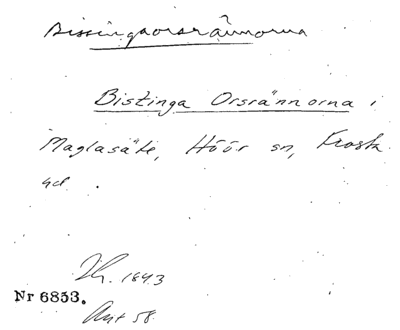 Bissingaorsrännorna
Bistinga Orsrännorna i
Maglasäte, Höör sn, Frosta
hd.
1843
Nr 6853.
Avt 58